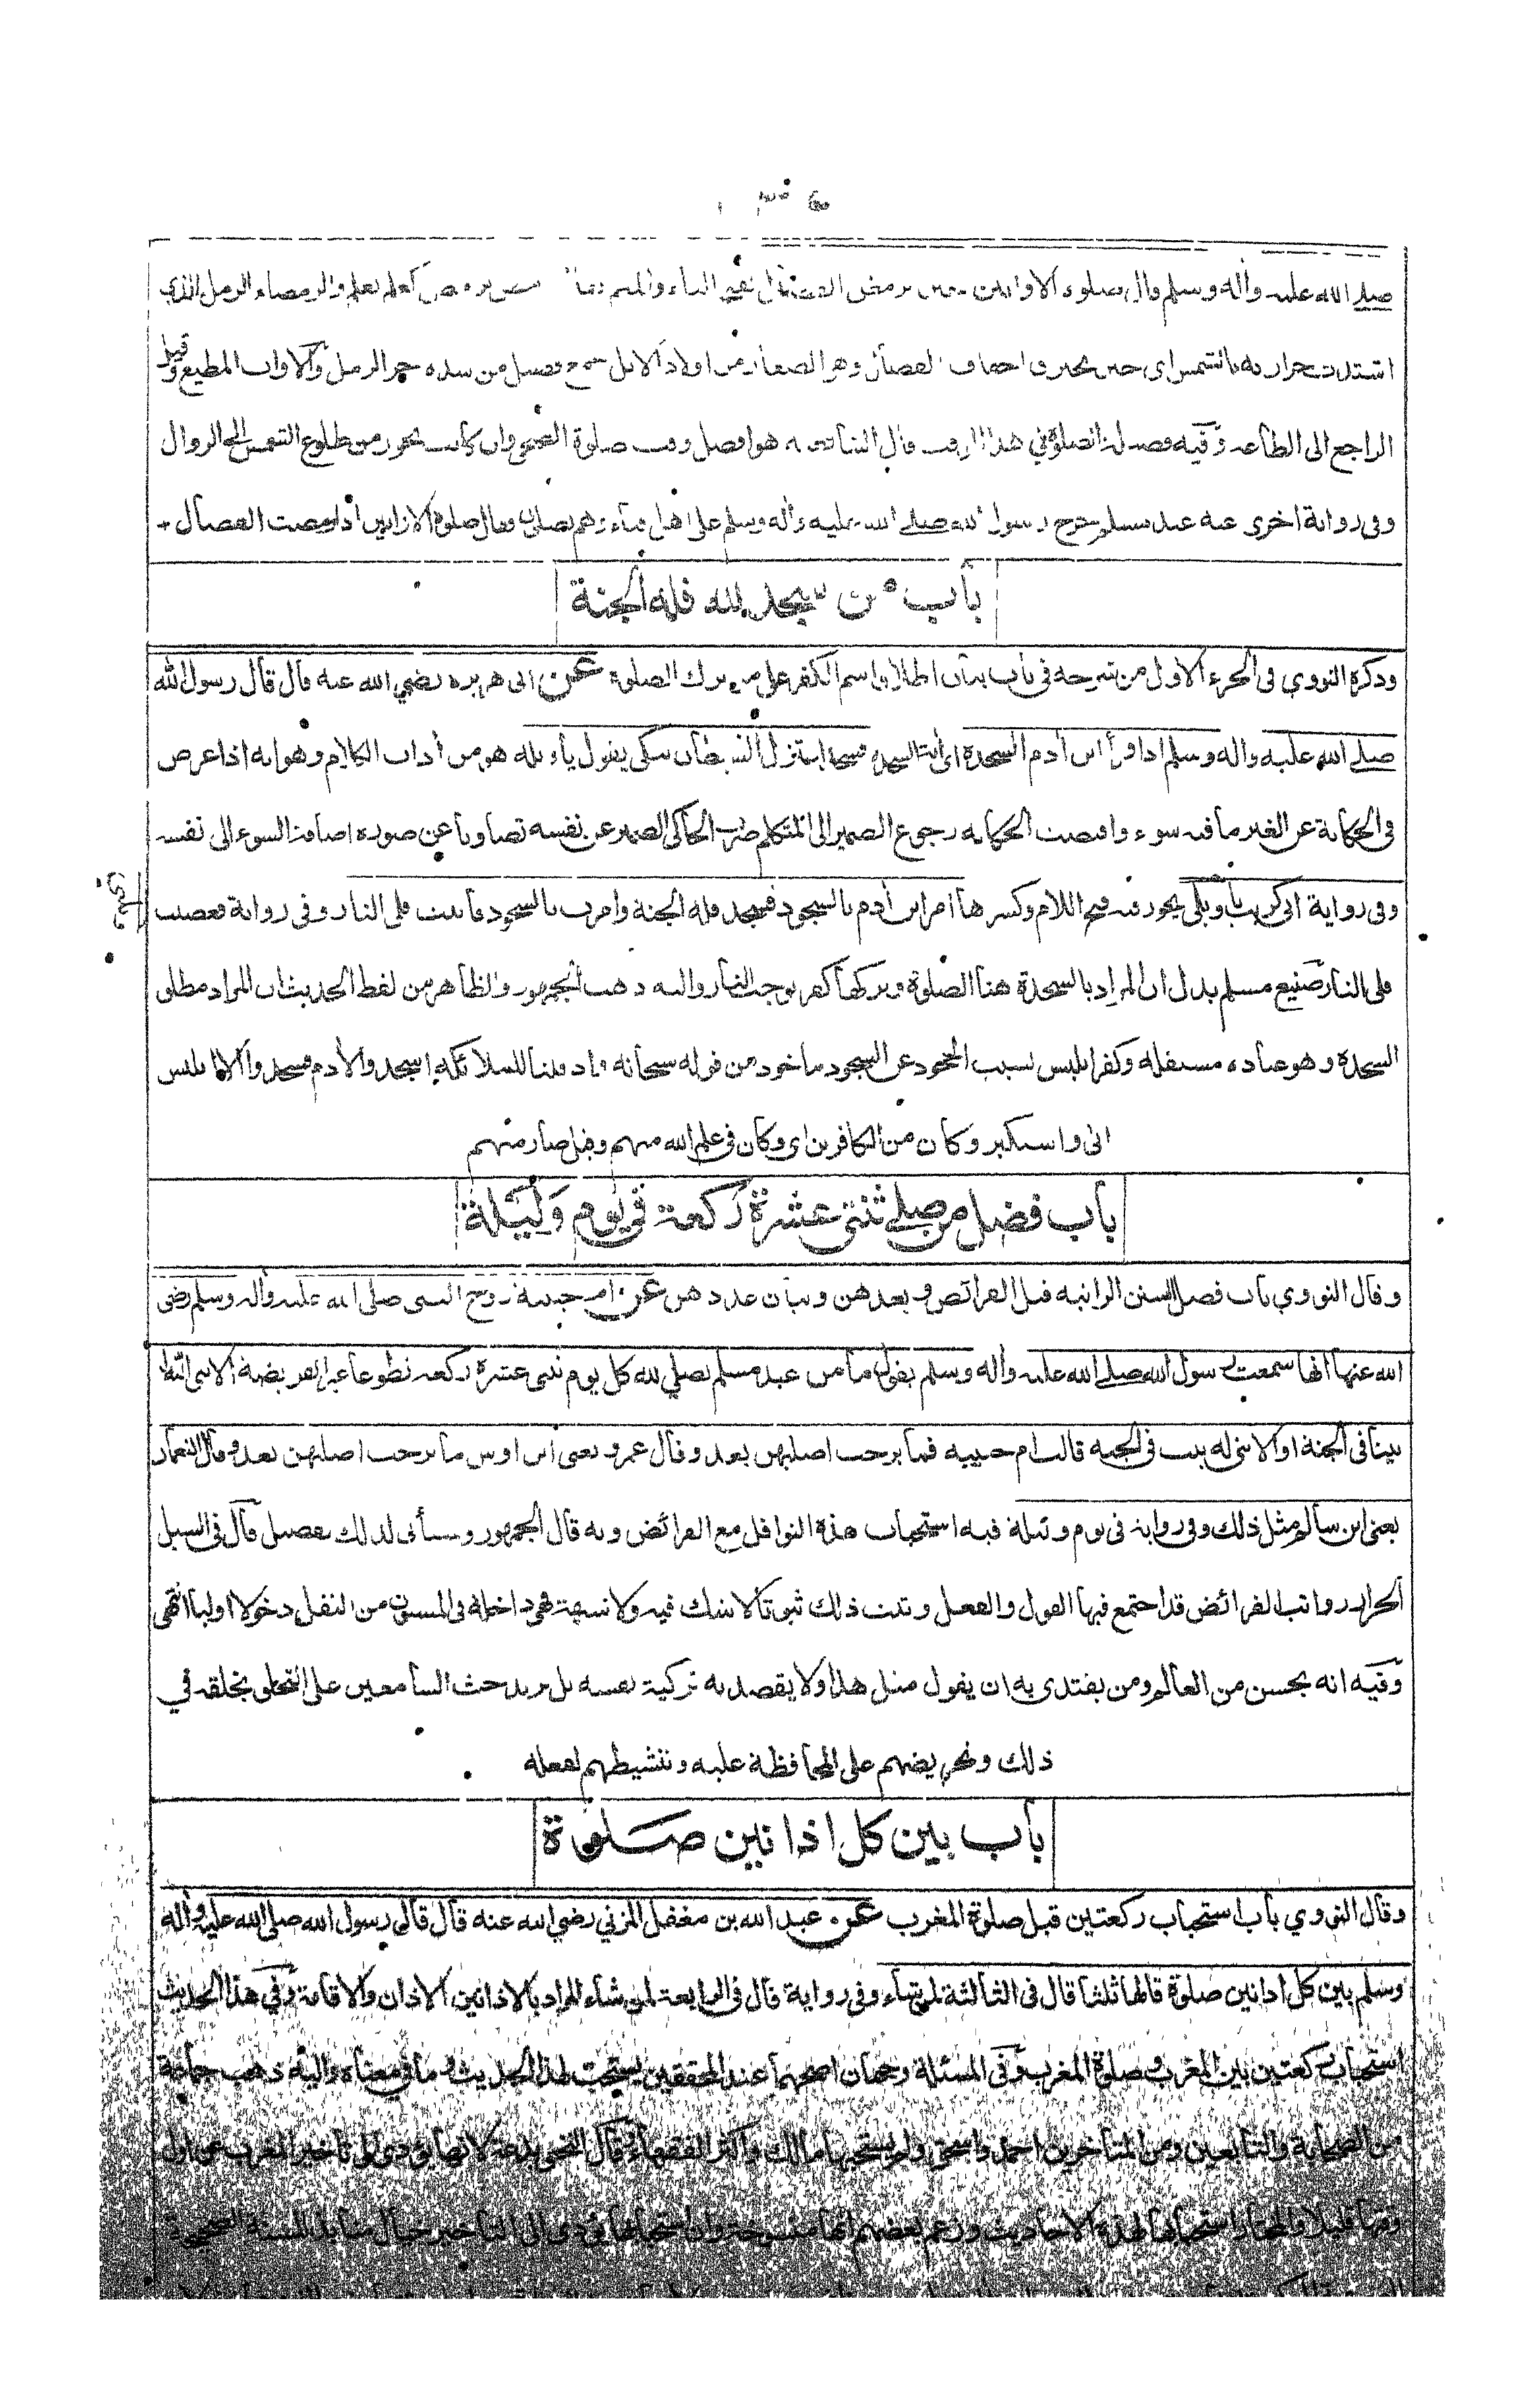 صلى الله عليه وأله وسلم قال صلوة الاوابين حين ترمض الفصال بفتح التاء والميم يقال رمض يرمض كعلم يعلم والرمضاء الرمل الذي
اشتدت حرارته بالشمس اى حين يحترق اخفاف الفصال وهو الصغار من اولاد الابل جمع فصيل من شدة حر الرمل والاواب المطيع وقيل
الراجع الى الطاعة وفيه فضيلة الصلوة في هذا الوقت قال الشافعية هو افضل وقت صلوة الضحى وان كانت تجوز من طلوع الشمس الى الزوال
وفى رواية اخرى عنه عند مسلم خرج رسول الله صلى الله عليه وأله وسلم على اهل قباء وهم يصلون فقال صلوة الاوابين اذا رمضت الفصال
باب من سجد لله فله الجنة
وذكره النووي فى الجزء الاول من شرحه فى باب بيان اطلاق اسم الكفر على من ترك الصلوة عن ابى هريرة رضي الله عنه قال قال رسول الله
صلى الله عليه وأله وسلم اذا قرأ ابن أدم السجدة اى أية السجدة فسجد اعتزل الشيطان يبكى يقول يا ويله هو من أداب الكلام وهو انه اذا عرض
فى الحكاية عن الغير ما فيه سوء واقتضت الحكاية رجوع الضمير الى المتكلم صرف الحاكى الضمير عن نفسه تصاونا عن صورة اضافة السوء الى نفسه
وفى رواية ابى كريب يا ويلى يجوز فيه فتح اللام وكسرها أمر ابن أدم بالسجود فسجد فله الجنة وامرت بالسجود فابيت فلى النار وفى رواية فعصيت
فلى النار صنيع مسلم يدل ان المراد بالسجدة هنا الصلوة وتركها كفر يوجب النار واليه ذهب الجمهور والظاهر من لفظ الحديث ان المراد مطلق
السجدة وهو عبادة مستقلة وكفر ابليس بسبب الجحود عن السجود ماخوذ من قوله سبحانه واذ قلنا للملائكة اسجدوا لأدم فسجدوا الا ابليس
ابى واستكبر وكان من الكافرين اى وكان فى علم الله منهم وقيل صار منهم
باب فضل من صلى ثنتى عشرة ركعة فى يوم وليلة
وقال النووي باب فضل السنن الراتبة قبل الفرائض وبعدهن وبيان عددهن عن ام حبيبة زوج النبى صلى الله عليه وأله وسلم رضى
الله عنها انها سمعت رسول الله صلى الله عليه وأله وسلم يقول ما من عبد مسلم يصلي لله كل يوم ثنتى عشرة ركعة تطوعا غير الفريضة الا بنى الله له
بيتا فى الجنة او الا بنى له بيت فى الجنة قالت ام حبيبة فما برحت اصليهن بعد وقال عمرو يعنى ابن اوس ما برحت اصليهن بعد وقال النعمان
يعنى ابن سالم مثل ذلك وفى رواية فى يوم وليلة فيه استحباب هذه النوافل مع الفرائض وبه قال الجمهور وسيأتى لذلك تفصيل قال فى السيل
الجرار رواتب الفرائض قد اجتمع فيها القول والفعل وثبت ذلك ثبوتا لا شك فيه ولا شبهة فهى داخلة فى المسنون من النفل دخولا اوليا انتهى
وفيه انه يحسن من العالم ومن يقتدى به ان يقول مثل هذا ولا يقصد به تزكية نفسه بل يريد حث السامعين على التخلق بخلقه في
ذلك وتحريضهم على المحافظة عليه وتنشيطهم لفعله
باب بين كل اذانين صلوة
وقال النووي باب استحباب ركعتين قبل صلوة المغرب عن عبد الله بن مغفل المزني رضي الله عنه قال قال رسول الله صلى الله عليه وأله
وسلم بين كل اذانين صلوة قالها ثلثا قال فى الثالثة لمن شاء وفى رواية قال فى الرابعة لمن شاء المراد بالاذانين الاذان والاقامة وفي هذا الحديث
استحباب ركعتين بين المغرب وصلوة المغرب وفى المسئلة وجهان اصحهما عند المحققين يستحب لهذا الحديث وما فى معناه واليه ذهب جماعة
من الصحابة والتابعين ومن المتأخرين احمد واسحق ولم يستحبها مالك واكثر الفقهاء وقال النخعى بدعة لانها يؤدى الى تاخير المغرب عن اول
وقتها قليلا والمختار استحبابها لهذه الاحاديث وزعم بعضهم انها منسوخة وان استحبابها يؤدى الى التاخير خيال منابذ للسنة الصحيحة